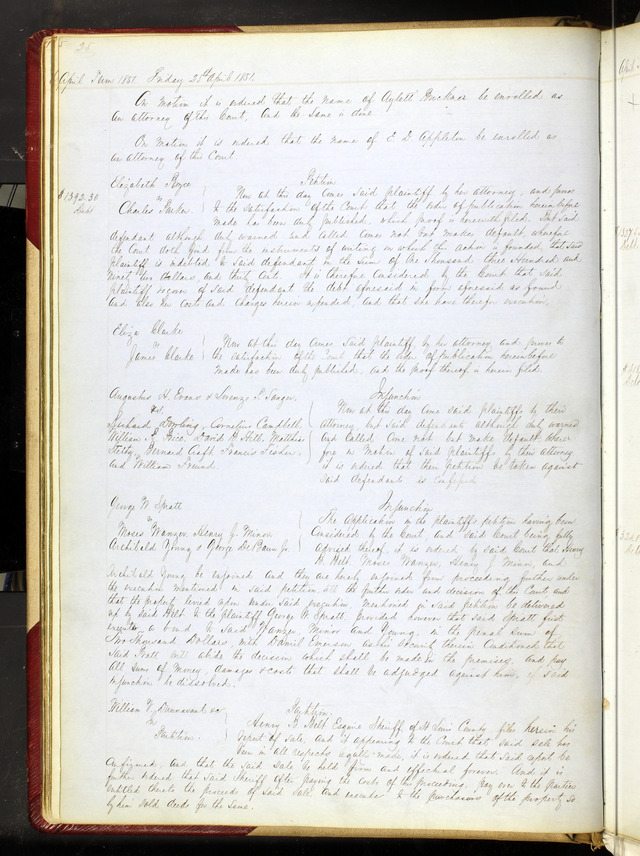 25.
April Term 1851. Friday 25th April 1851.
On motion it is ordered that the name of Aylett Buckner be enrolled as
an attorney of this Court, and the same is done
On Motion it is ordered that the name of E. D. Appleton be enrolled as
an attorney of this Court
Elizabeth Boyce
vs
Charles Parker.
$1392.30
Debt
Petition
Now at this day comes said plaintiff by her attorney, and proves
to the satisfaction of the Court that the order of publication hereinbefore
made has been duly published, which proof is herewith filed. And said
defendant although duly warned and called comes not but makes default, wherefore
the Court doth find that the instruments of writing on which the action is founded, that said
plaintiff is indebted to said defendant in the sum of One Thousand three Hundred and
Ninety two dollars, and thirty cents. It is therefore Considered by the Court that said
plaintiff recover of said defendant the debt aforesaid in form aforesaid as found
and also her costs and charges herein expended, and that she have therefor execution.
Eliza Clarke
vs
James Clarke
Now at this day comes said plaintiff by her attorney and proves to
the satisfaction of the Court that the order of publication hereinbefore
made has been duly published, and the proof thereof is herein filed
Augustus H. Evans & Lorenzo P. Sanger.
vs.
Richard Dowling, Cornelius Campbell
William Rice, David B. Hill, Matthias
Bernard Craft Francis Fisher.
and William
Injunction
Now at this day come said plaintiffs by their
attorney, but said defendants although duly warned
and called Come not but make default where
fore on motion of said plaintiffs by their attorney
it is ordered that their petition be taken against
said defendants as Confessed
George W. Spratt
vs
Moses Wanzer, Henry J. Minor
Archibald Young & George De Baun Jr.
Injunction
The Application in the plaintiffs petition having been
Considered by the Court, and said Court being fully
advised thereof, it is ordered by said Court that Henry
H. Holt Moses Wanzer, Henry J. Minor, and
Archibald Young be enjoined and they are hereby enjoined from proceeding further under
the execution mentioned in said petition till the further order and decision of this Court and
that the property levied upon under said execution mentioned in said petition be delivered
up by said Holt to the plaintiff George W. Spratt, provided however that said Spratt first
execute a bond to said Wanzer Minor and Young in the penal sum of
Two Thousand Dollars with Daniel Emerson as his security therein Conditioned that
said Spratt will abide the decision which shall be made in the premises, and pay
all sums of money, damages & costs that shall be adjudged against him, if said
injunction be dissolved.
William V. Dunnavant &c
vs
Partition.
Partition
Henry B. Holt Esquire Sheriff of St Louis County files herein his
report of sale, and it appearing to the Court that said sale has
been in all respects legally made, it is ordered that said report be
Confirmed, and that the said sale be held firm and effectual forever. And it is
further ordered that said Sheriff after paying the costs of this proceeding, pay over to the parties
entitled thereto the proceeds of said sale and execute to the purchasers of the property so
by him sold deeds for the same.